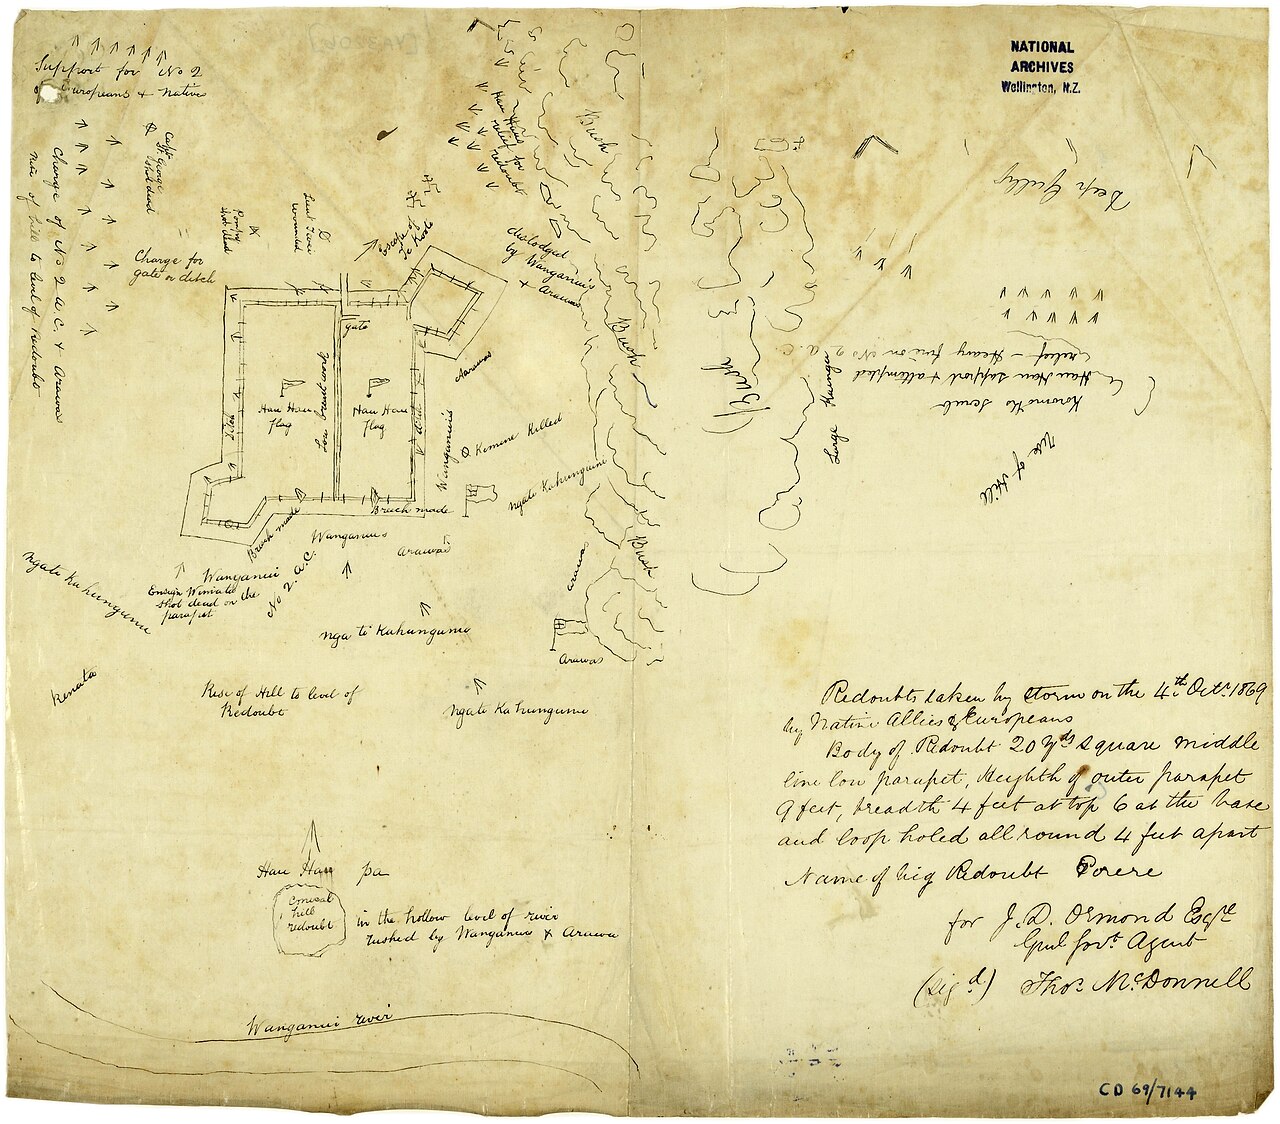 NATIONAL
ARCHIVES
Wellington, N.Z.
Support for No 2
Europeans & Natives
Charge of No 2 A.C. & Arawas
rise of hill to level of Redoubt
Capt. St George
shot dead
Charge for
gate or ditch
Pompey
shot dead
wounded
Escape of
Te Kooti
Hau Hau
relief for
redoubt
dislodged
by Wanganuis
& Arawas
Bush
Bush
Bush
Bush
gate
Hau Hau
flag
Hau Hau
flag
low parapet
ditch
ditch
Aarawas
Wanganuis
Kemene Killed
ngati Kahungunu
Breach made
Breach made
Wanganuis
Arawas
Arawa
Arawas
Wanganui
No 2. A.C.
Ensign Wirihana
shot dead on the
parapet
ngati Kahungunu
nga ti Kahungunu
ngati Kahungunu
Renata
Rise of Hill to level of
Redoubt
Hau Hau pa
conical
hill
redoubt
in the hollow level of river
rushed by Wanganuis & Arawa
Wanganui river
Deep Gully
Large
Koromiko scrub
Hau Hau support & attempted
relief - Heavy fire on No 2 A.C.
rise of Hill
Redoubts taken by storm on the 4th Octr. 1869
by Native Allies & Europeans
Body of Redoubt 20 yds square middle
line low parapet, Heighth of outer parapet
9 feet, breadth 4 feet at top 6 at the base
and loop holed all round 4 feet apart
Name of big Redoubt Porere
for J. D. Ormond Esqre
Genl Govt Agent
(sigd.) Thos. McDonnell
CD 69/7144